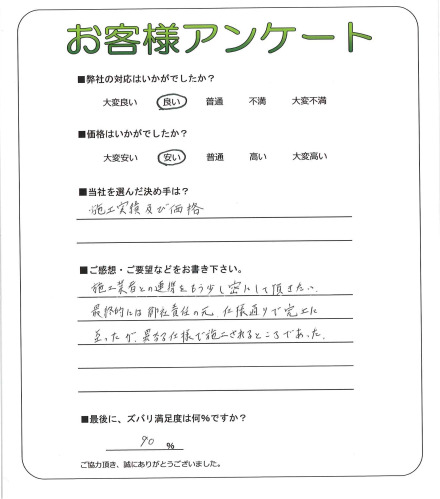 お客様アンケート
■弊社の対応はいかがでしたか？
大変良い 良い 普通 不満 大変不満
■価格はいかがでしたか？
大変安い 安い 普通 高い 大変高い
■当社を選んだ決め手は？
施工実績及び価格
■ご感想・ご要望などをお書き下さい。
施工業者との連携をもう少し密にして頂きたい。
最終的には御社責任の元、仕様通りで完工に
至ったが、異なる仕様で施工されるところであった。
■最後に、ズバリ満足度は何%ですか？
90 %
ご協力頂き、誠にありがとうございました。